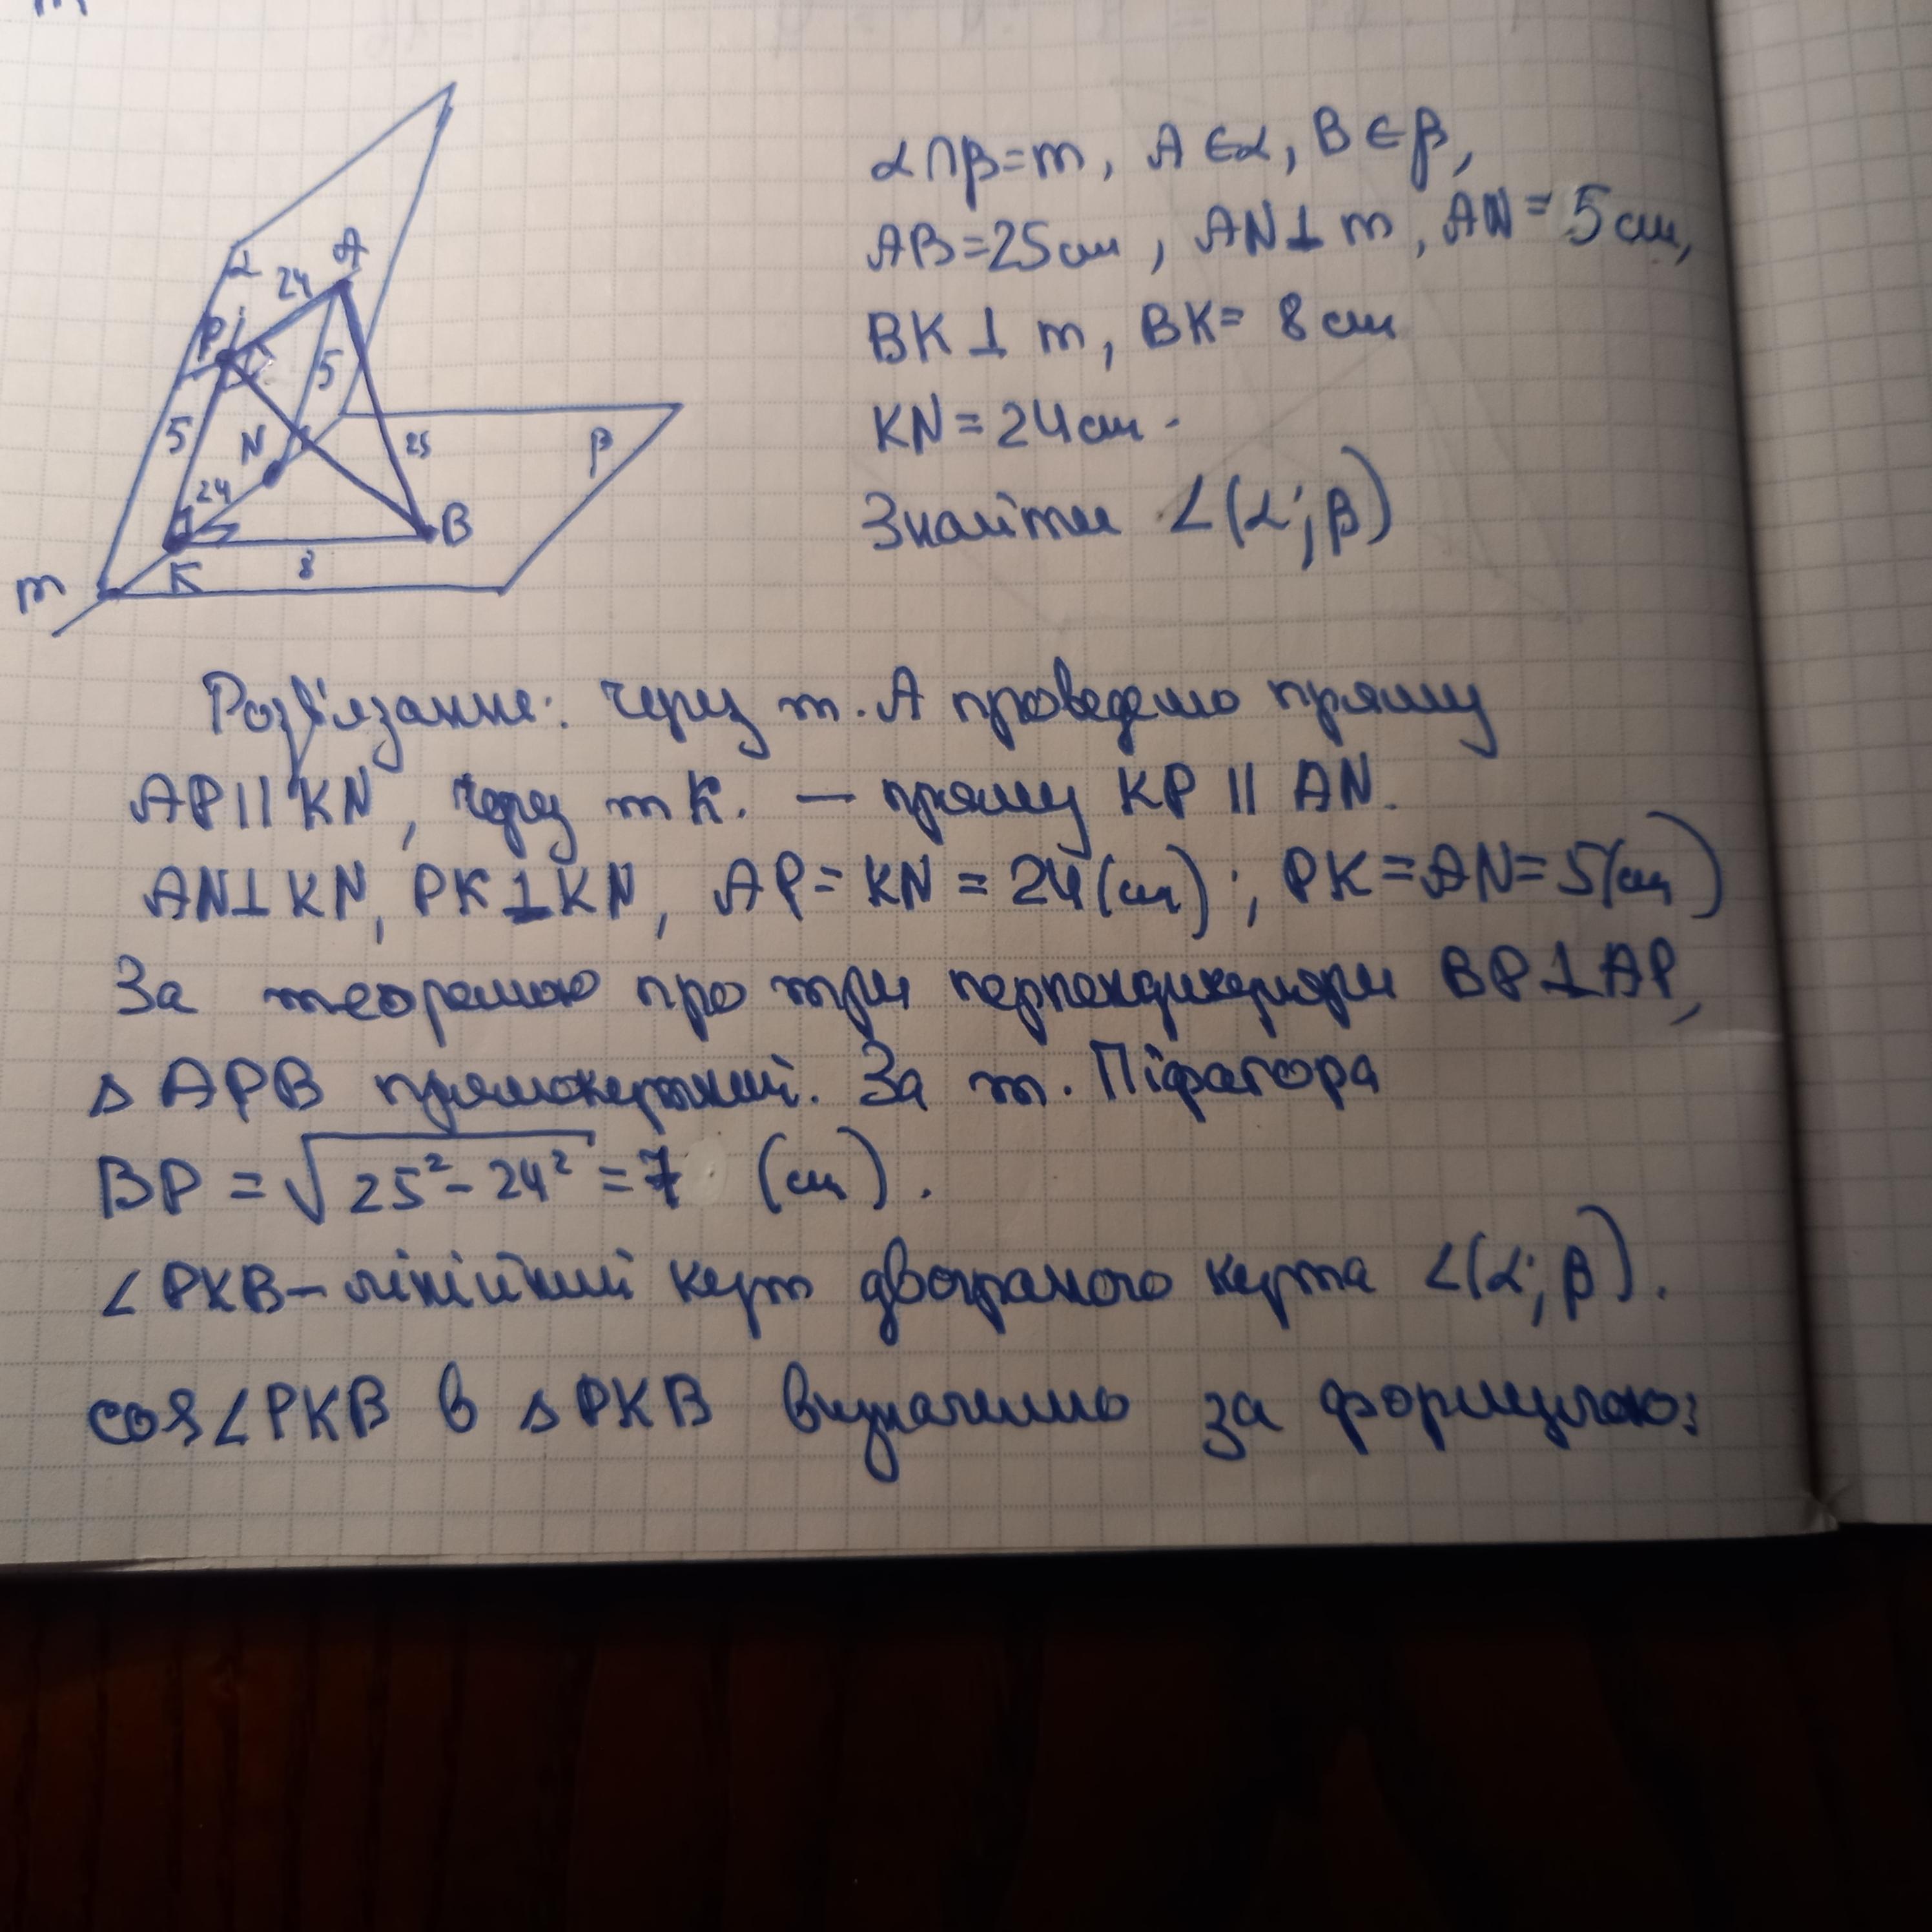 m
α
24
A
P
5
5
N
25
β
24
B
K
8
m
α∩β=m, A∈α, B∈β,
AB=25см, AN⊥m, AN=5см,
BK⊥m, BK=8см
KN=24см.
Знайти ∠(α;β)
Розв'язання: через т.А проведемо пряму
AP||KN, через т К. — пряму KP || AN.
AN⊥KN, PK⊥KN, AP=KN=24(см); PK=AN=5(см)
За теоремою про три перпендикуляри BP⊥AP,
△APB прямокутний. За т. Піфагора
BP=√25²-24²=7 (см).
∠PKB-лінійний кут двограного кута ∠(α;β).
cos∠PKB в △PKB визначимо за формулою: